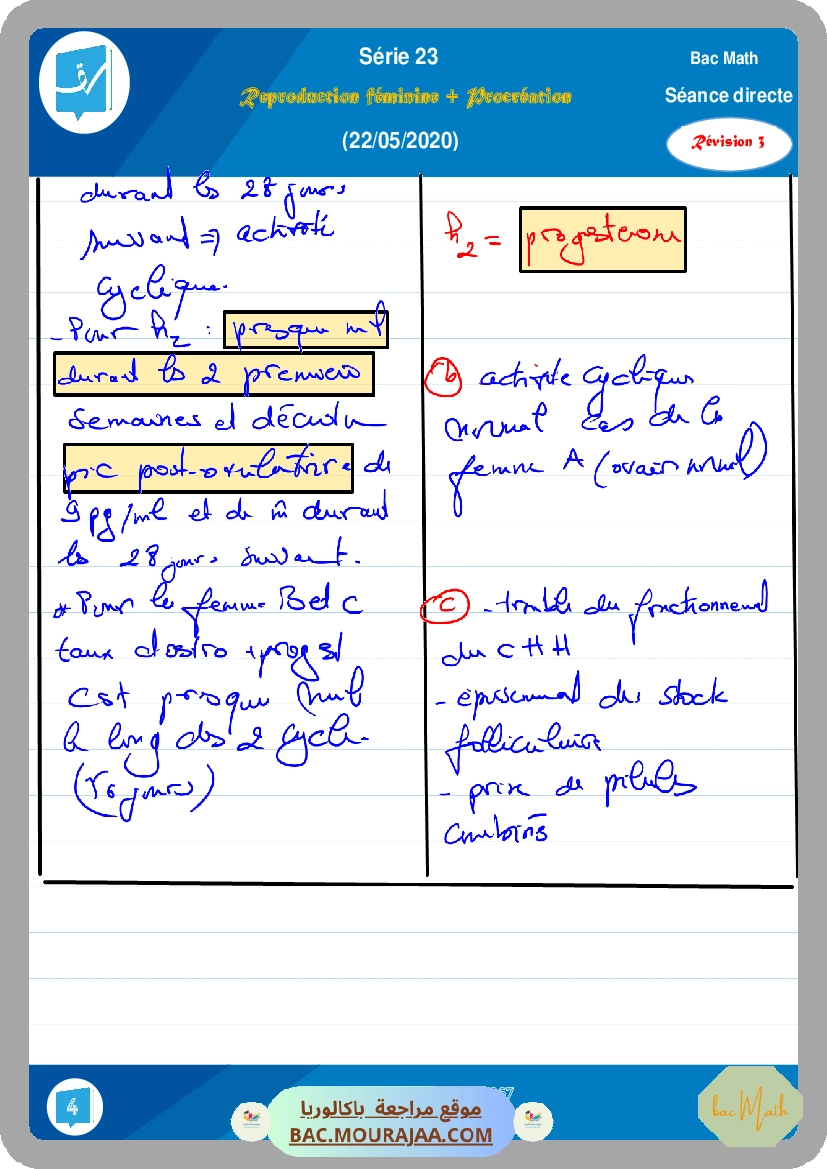 Série 23
Bac Math
Reproduction féminine + Procréation
Séance directe
(22/05/2020)
Révision 3
durant les 28 jours
suivant => activité
cyclique.
- Pour h2 : presque nul
durant les 2 premiers
semaines et décrit un
pic post-ovulatoire de
9 pg/ml et de m̂ durant
les 28 jours suivant.
* Pour les femmes B et C
taux d'oestro + progest
est presque nul
le long des 2 cycles
(56 jours)
h2 = progesterone
b activite cyclique
normal cas de la
femme A (ovaire normal)
c - trouble du fonctionnement
du CHH
- épuisement du stock
folliculaire
- prise de pilules
combinés
4
موقع مراجعة باكالوريا
BAC.MOURAJAA.COM
bac Math